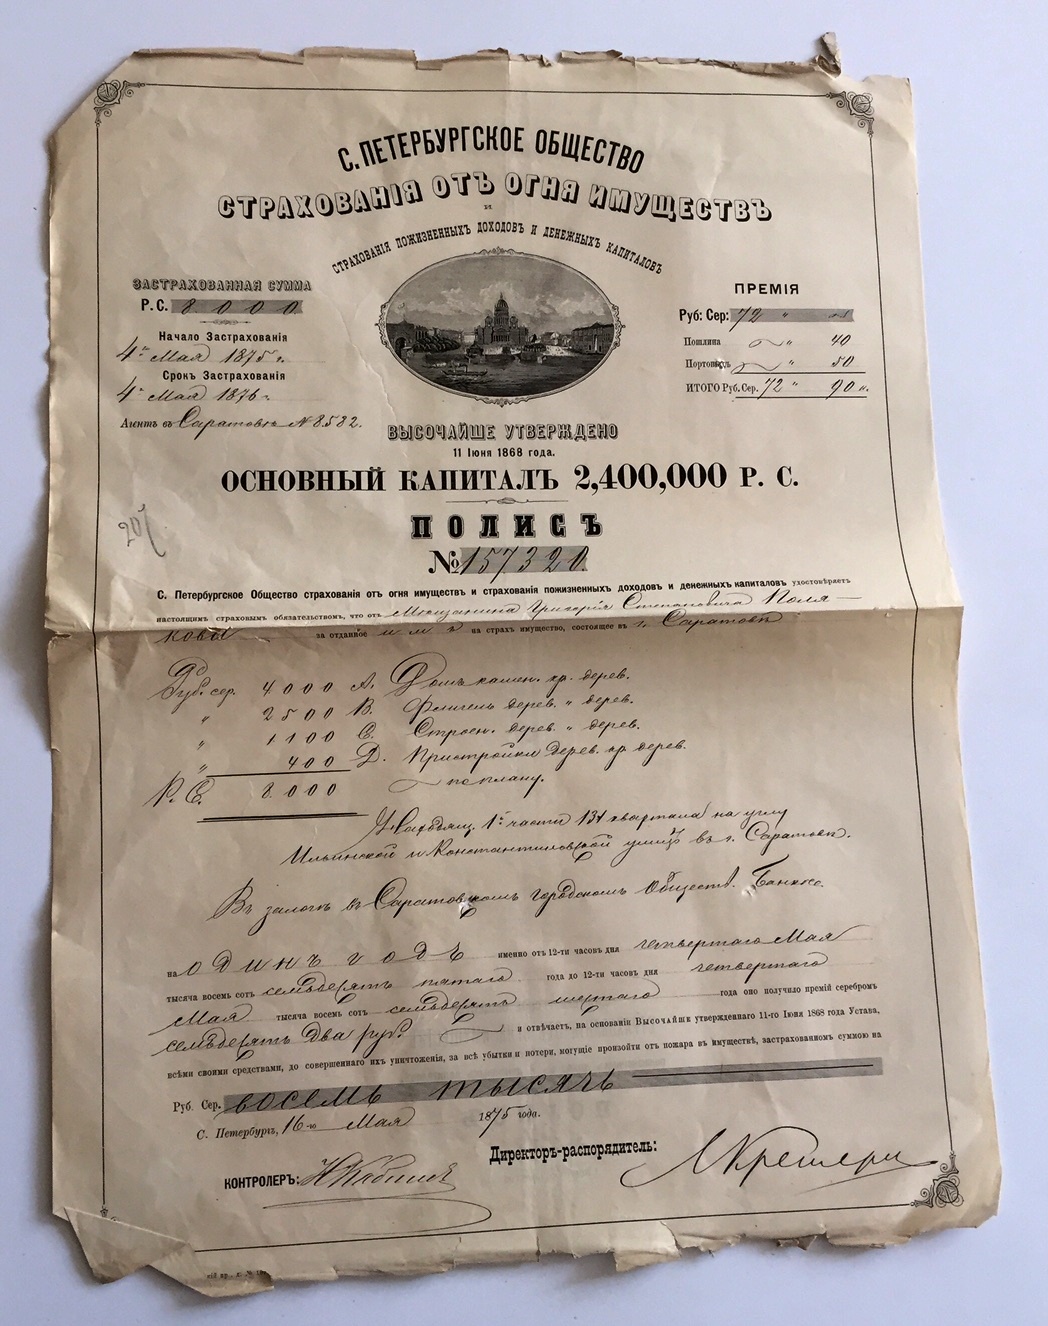 С. ПЕТЕРБУРГСКОЕ ОБЩЕСТВО
СТРАХОВАНІЯ ОТЪ ОГНЯ ИМУЩЕСТВЪ
И
СТРАХОВАНІЯ ПОЖИЗНЕННЫХЪ ДОХОДОВЪ И ДЕНЕЖНЫХЪ КАПИТАЛОВЪ
ЗАСТРАХОВАННАЯ СУММА
Р. С. 8000
Начало Застрахованія
4го Мая 1875 г.
Срокъ Застрахованія
4го Мая 1876 г.
Агентъ въ Саратовѣ № 8532.
ПРЕМІЯ
Руб: Сер: 72 "
Пошлина " 40
Портовыхъ " 50
ИТОГО Руб. Сер. 72 " 90 к.
ВЫСОЧАЙШЕ УТВЕРЖДЕНО
11 Іюня 1868 года.
ОСНОВНЫЙ КАПИТАЛЪ 2,400,000 Р. С.
ПОЛИСЪ
№ 157320
С. Петербургское Общество страхованія отъ огня имуществъ и страхованія пожизненныхъ доходовъ и денежныхъ капиталовъ удостовѣряетъ
настоящимъ страховымъ обязательствомъ, что отъ Мѣщанина Григорія Степановича Поля-
кова за отданное имъ на страхъ имущество, состоящее въ г. Саратовѣ
Руб. сер. 4000 А. Домъ камен. кр. дерев.
" 2500 В. Флигель дерев. " дерев.
" 1100 С. Строен. дерев. " дерев.
" 400 Д. Пристройки дерев. кр. дерев.
Р. С. 8000 по плану.
Находящ. 1й части 131 квартала на углу
Ильинской и Константиновской улицъ въ г. Саратовѣ.
Въ залогѣ въ Саратовскомъ Городскомъ Обществ. Банкѣ.
на одинъ годъ именно отъ 12-ти часовъ дня четвертаго Мая
тысяча восемь сотъ семьдесятъ пятаго года до 12-ти часовъ дня четвертаго
Мая тысяча восемь сотъ семьдесятъ шестаго года оно получило премій серебромъ
семьдесятъ два руб. и отвѣчаетъ, на основаніи Высочайше утвержденнаго 11-го Іюня 1868 года Устава,
всѣми своими средствами, до совершеннаго ихъ уничтоженія, за всѣ убытки и потери, могущіе произойти отъ пожара въ имуществѣ, застрахованномъ суммою на
Руб. Сер. восемь тысячъ
С. Петербургъ, 16-го Мая 1875 года.
Директоръ-распорядитель:
КОНТРОЛЕРЪ: